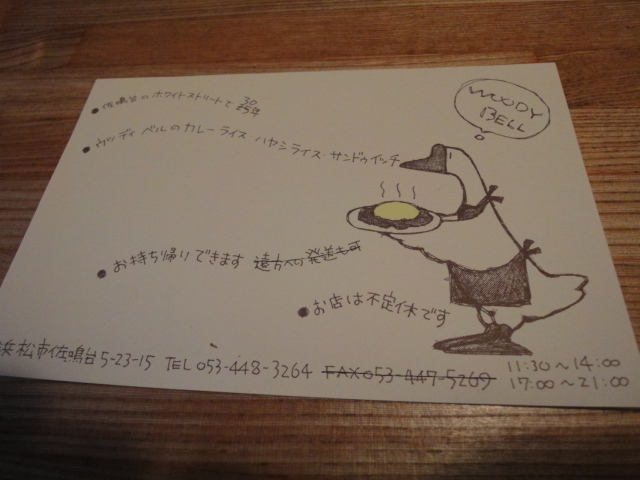 WOODY
BELL
● 佐鳴台のホワイトストリートで 30
25年
● ウッディベルのカレーライス ハヤシライス・サンドゥイッチ
● お持ち帰りできます 遠方への発送も可
● お店は不定休です
浜松市佐鳴台5-23-15 TEL 053-448-3264 FAX 053-447-5269
11:30～14:00
17:00～21:00